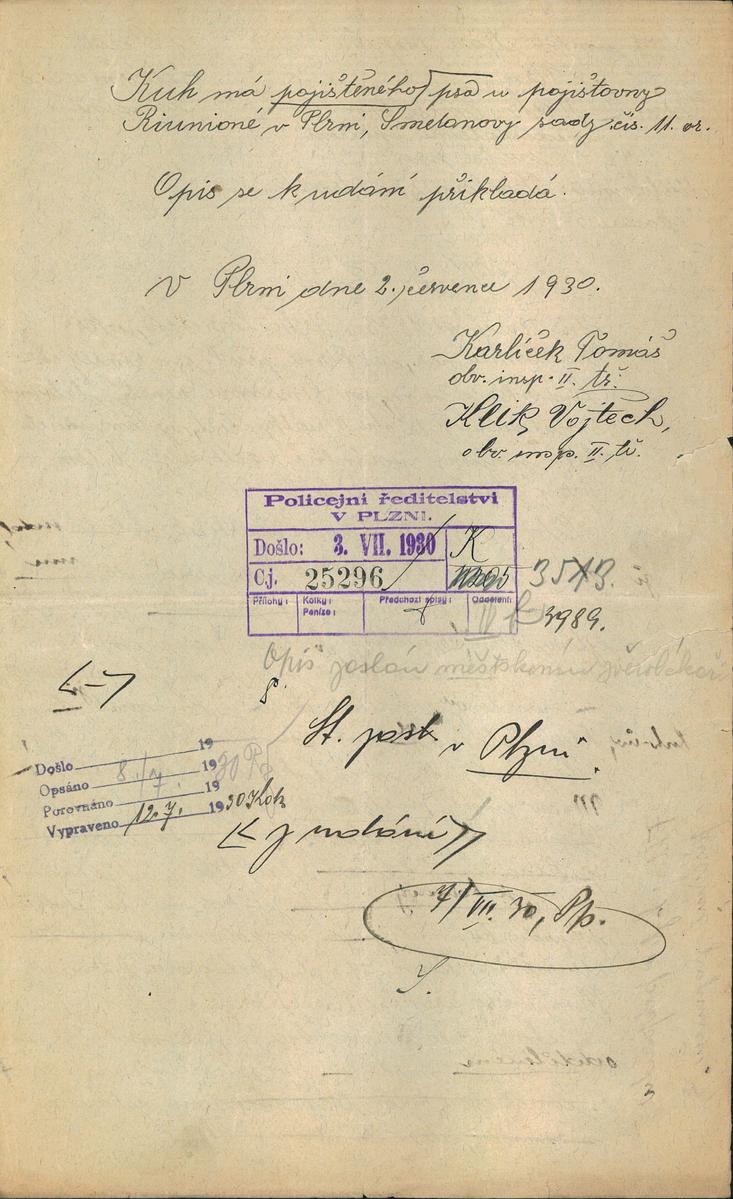 Kuh má pojištěného psa u pojišťovny
Riunioné v Plzni, Smetanovy sady čís. 11. or.
Opis se k udání přikládá.
V Plzni dne 2. července 1930.
Karlíček Tomáš
obv. insp. II. tř.
Klik Vojtěch,
obv. insp. II. tř.
Policejní ředitelství
V PLZNI.
Došlo: 3. VII. 1930 K
Čj. 25296
Přílohy: Kolky: Peníze: Předchozí spisy: Oddělení:
3989.
Opis zaslán městskému zvěrolékaři
St. zast. v Plzni.
Došlo 19
Opsáno 8/7. 1930
Porovnáno 19
Vypraveno 12.7. 1930
udání
7/VII. 30, Pp.